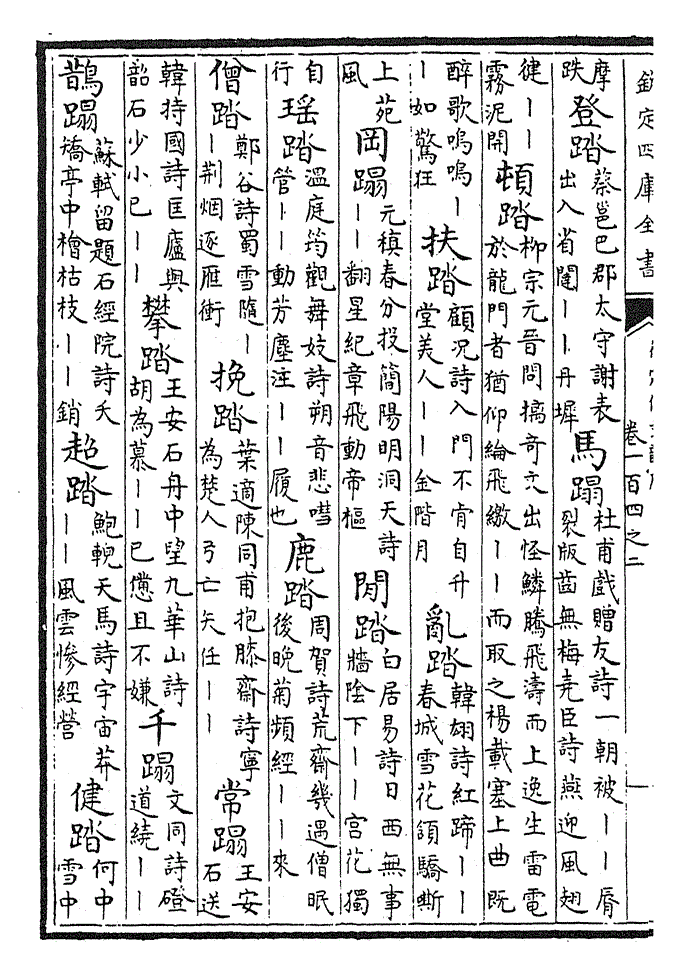 欽定四庫全書
卷一百四之二
摩跌登踏蔡邕巴郡太守謝表出入省闥丨丨丹墀馬蹋杜甫戲贈友詩一朝被丨丨脣裂版齒無梅堯臣詩燕迎風翅
倢丨丨霧泥開頓踏柳宗元晉問摛奇文出怪鱗騰飛濤而上逸生雷電於龍門者猶仰綸飛繳丨丨而取之楊載塞上曲既
醉歌嗚嗚丨丨如驚狂扶踏顧況詩入門不肯自升堂美人丨丨金階月亂踏韓翃詩紅蹄丨丨春城雪花頷驕嘶
上苑風岡蹋元稹春分投簡陽明洞天詩丨丨翻星紀章飛動帝樞閒踏白居易詩日西無事牆陰下丨丨宮花獨
自行瑶踏温庭筠觀舞妓詩朔音悲嘒管丨丨動芳塵注丨丨履也鹿踏周賀詩荒齋幾遇僧眠後晚菊頻經丨丨來
僧踏鄭谷詩蜀雪隨丨丨荆烟逐雁衝挽踏葉適陳同甫抱膝齋詩寧為楚人弓亡矢任丨丨常蹋王安石送
韓持國詩匡廬與韶石少小已丨丨攀踏王安石舟中望九華山詩胡為慕丨丨已憊且不嫌千蹋文同詩磴道繞丨丨
鵲蹋蘇軾留題石經院詩夭矯亭中檜枯枝丨丨銷超踏鮑輗天馬詩宇宙莽丨丨風雲慘經營健踏何中雪中